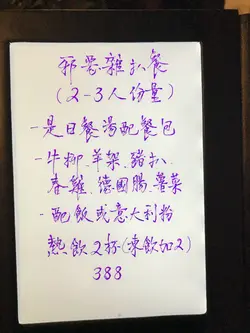 邪惡雜扒餐
(2-3人份量)
-是日餐湯配餐包
-牛柳、羊架、豬扒、
春雞、德國腸、薯菜
-配飯或意大利粉
熱飲2杯(凍飲加2)
388